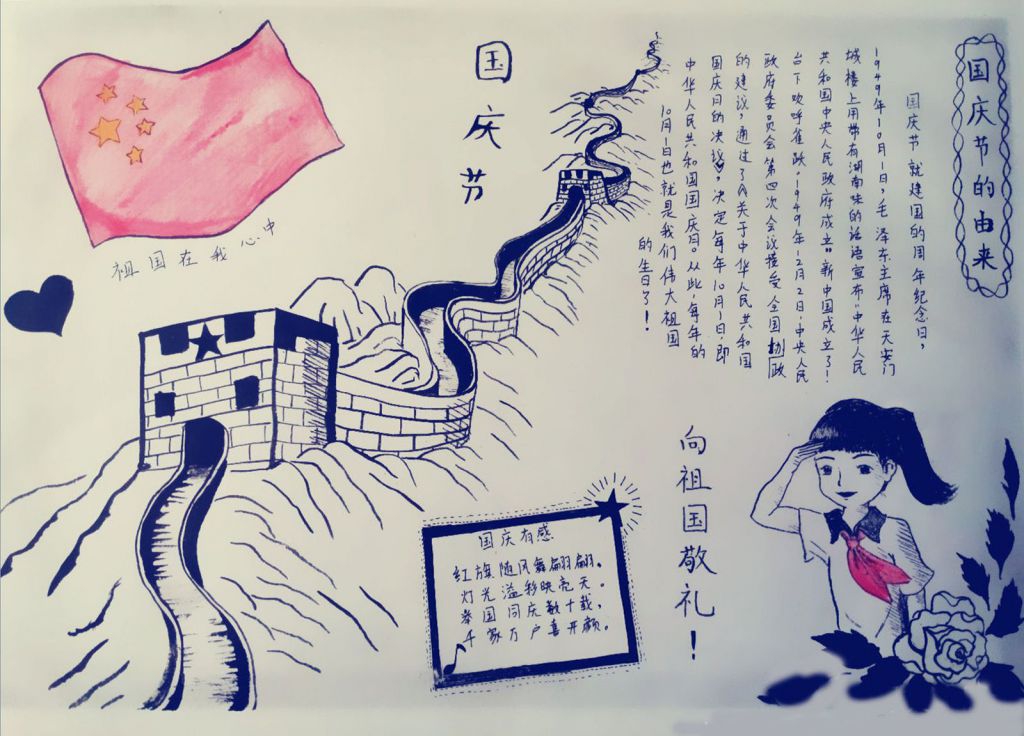 国庆节的由来
国庆节就建国的周年纪念日，
1949年10月1日，毛泽东主席在天安门
城楼上用带有湖南味的话语宣布“中华人民
共和国中央人民政府成立”新中国成立了！
台下欢呼雀跃。1949年12月2日，中央人民
政府委员会第四次会议接受全国协政
的建议，通过了《关于中华人民共和国
国庆日的决议》，决定每年10月1日，即
中华人民共和国国庆日。从此，每年的
10月1日也就是我们伟大祖国
的生日了！
国庆节
祖国在我心中
向祖国敬礼！
国庆有感
红旗随风舞翩翩。
灯光溢彩映亮天。
举国同庆数十载，
千家万户喜开颜。